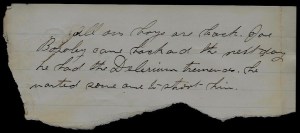 all our boys are back. Joe
came back at the next day
he had the Delerium tremenes. he
wanted some one to shoot him.